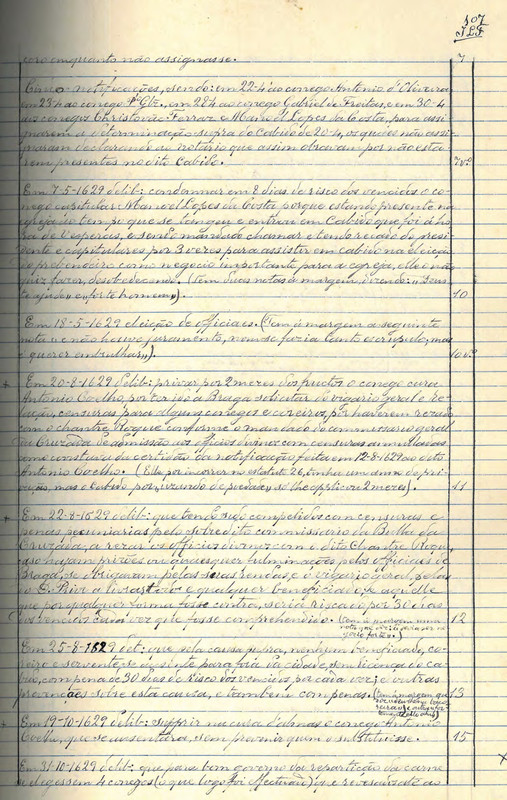 107
7
coro emquanto não assignasse.
Cinco notificações, sendo: em 22-4 ao conego Antonio d'Oliveira
em 23-4 ao conego, em 28-4 ao conego Gabriel de Freitas, e em 30-4
aos conegos Christovão Ferraz e Manoel Lopes da Costa, para assi-
gnarem a determinação supra do Cabido de 20-4, os quaes não assi-
gnaram declarando ao notario que assim obravam por não esta-
rem presentes no dito Cabido. 7vº
Em 7-5-1629 delib: condemnar em 8 dias de risco dos vencidos o co-
nego capitular Manoel Lopes da Costa porque estando presente na
egreja ao tempo que se tangeu e entrou em Cabido que foi á ho-
ra de Vesperas, e sendo mandado chamar e tendo recado do presi-
dente e capitulares por 3 vezes para assistir em Cabido na eleição
do prebendeiro como negocio importante para a egreja, elle o não
quiz fazer, desobedecendo. (Tem duas notas á margem, dizendo: "Deus
te ajude" e "forte homem"). 10
Em 18-5-1629 eleição de officiaes. (Tem á margem a seguinte
nota "e não houve juramento, nem se fazia tanto escrupulo, mas
é querer embrulhar"). 10vº
+ Em 20-8-1629 delib: privar por 2 mezes dos fructos o conego cura
Antonio Coelho, por ter ido a Braga solicitar do vigario geral e re-
lação, censuras para alguns conegos e coreiros, por haverem rezado
com o chantre Roque conforme o mandado do commissario geral
da Cruzada de admissão aos officios divinos com censuras annulladas
como consta da certidão da notificação feita em 12-8-1629 ao dito
Antonio Coelho. (Elle por incorrer no estatuto 26, tinha um anno de pri-
vação, mas o Cabido, por "usando de piedade" só lhe applicou 2 mezes). 11
+ Em 22-8-1629 delib: que tendo sido compellidos com censuras e
penas pecuniarias pelo sobredito commissario da Bulla da
Cruzada, a rezar os officios divinos com o dito Chantre Roque,
caso hajam prisões ou quaesquer fulminações pelos officiaes de
Braga, se obrigavam pelas suas rendas, e o vigario geral, pelas
do e qualquer beneficiado, e aquelle
que por qualquer forma fosse contra, seria riscado por 30 dias
dos vencidos cada vez que fosse comprehendido. (Tem á margem uma
nota que diz: 12
Em 25-8-1629 det: que sob a causa, nenhum beneficiado, co-
reiro e servente se ausente para fora da cidade, sem licença do Ca-
bido, com pena de 30 dias de risco dos vencidos por cada vez; e outras
prevenções sobre esta causa, e tambem com penas. (tem á margem que
13
+ Em 19-10-1629 delib: supprir na cura d'almas o conego Antonio
Coelho, que se ausentara, sem prevenir quem o substituisse. 15
Em 31-10-1629 delib: que para bom governo da repartição da carne
se elegessem 4 conegos (o que logo foi effectuado) que